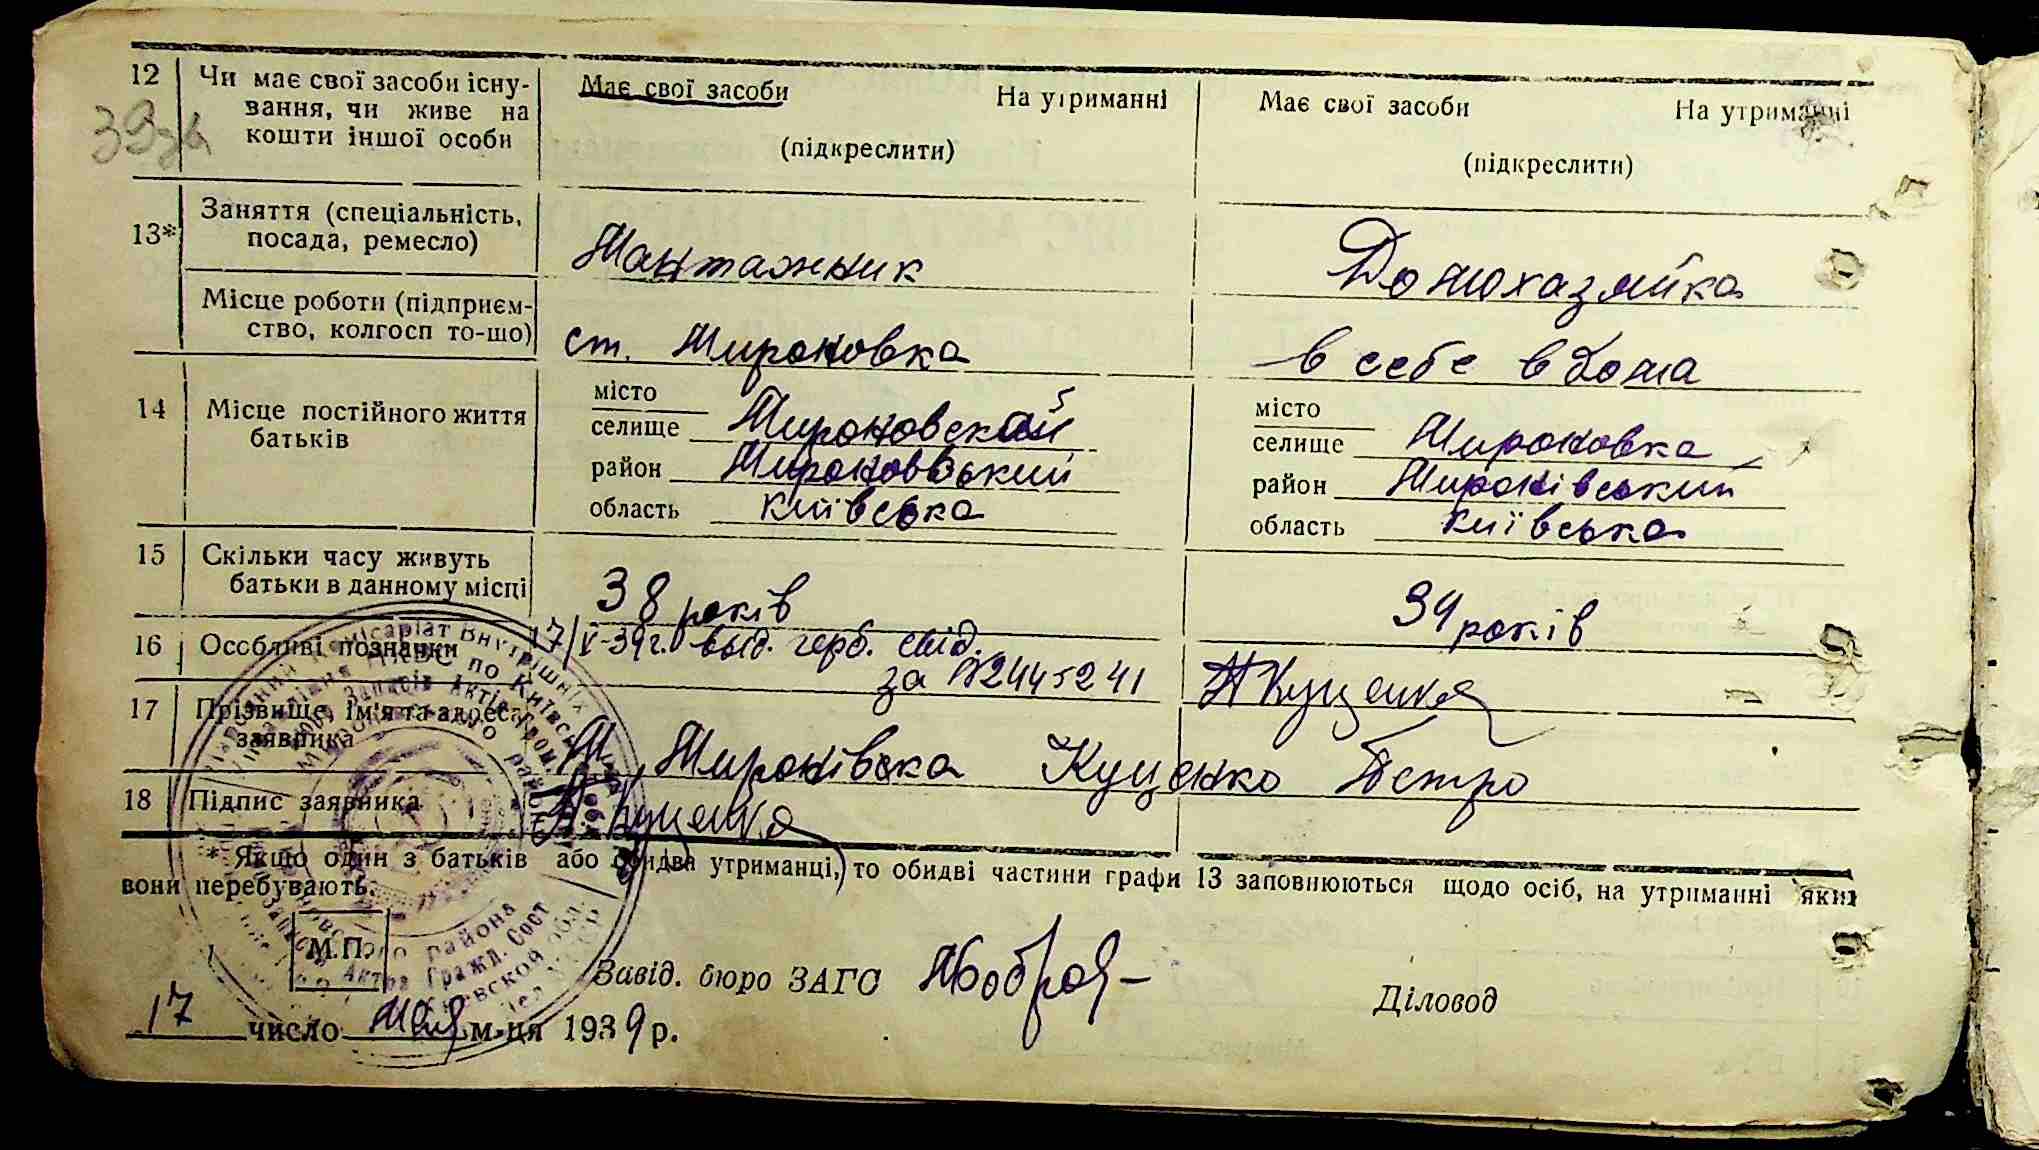 12 Чи має свої засоби існу-
вання, чи живе на
кошти іншої особи
Має свої засоби На утриманні
(підкреслити)
Має свої засоби На утриманні
(підкреслити)
13* Заняття (спеціальність,
посада, ремесло)
Мантажник
Домохазяйка
Місце роботи (підприєм-
ство, колгосп то-що)
ст. Мироновка
в себе в дома
14 Місце постійного життя
батьків
місто
селище Мироновской
район Мироновський
область київська
місто
селище Мироновка
район Миронівський
область київська
15 Скільки часу живуть
батьки в данному місці
38 років
34 років
16 Особливі позначки
17/V-39 г. выд. герб. свід.
за №2445241
ПКуценко
17 Прізвище, ім'я та адреса
заявника
М. Миронівка Куценко Петро
18 Підпис заявника
ПКуценко
* Якщо один з батьків або обидва утриманці, то обидві частини графи 13 заповнюються щодо осіб, на утриманні яких
вони перебувають.
М.П.
Завід. бюро ЗАГС
Діловод
17 число мая м-ця 1939 р.